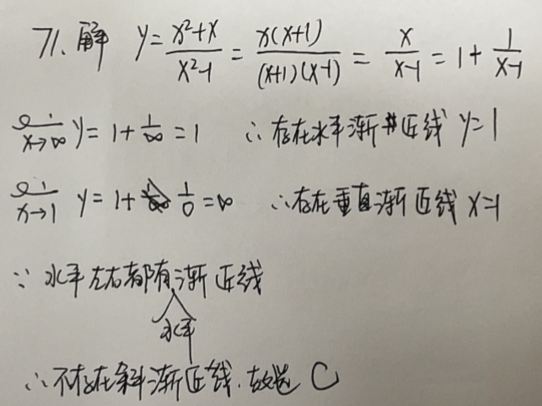 71. 解 y = (x²+x)/(x²-1) = x(x+1)/((x+1)(x-1)) = x/(x-1) = 1 + 1/(x-1)
x→∞ y = 1 + 1/∞ = 1 ∴ 存在水平渐近线 y=1
x→1 y = 1 + 1/0 = ∞ ∴ 存在垂直渐近线 x=1
∵ 水平左右都有渐近线
水平
∴ 不存在斜渐近线. 故选 C